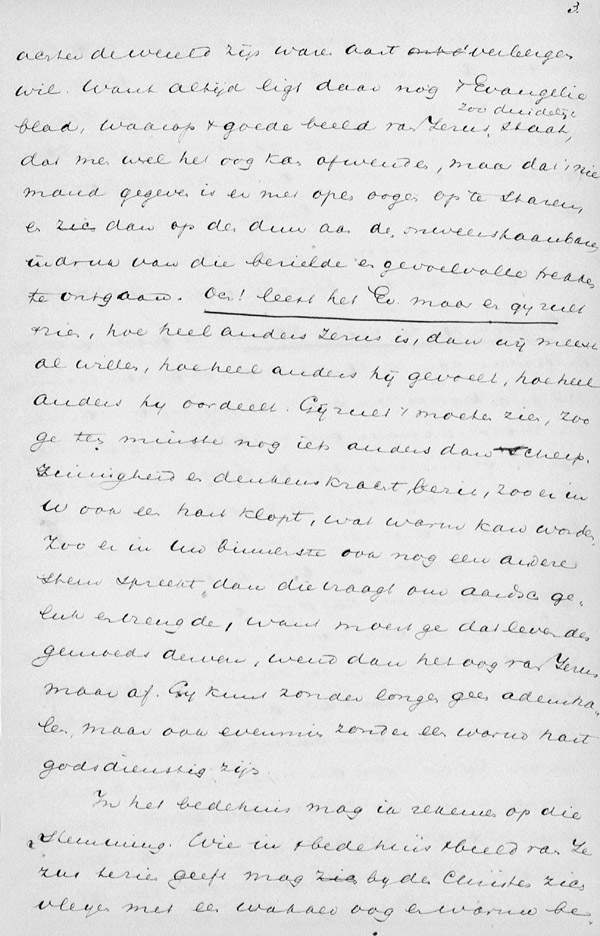 3.
achter de wereld zijn ware aart verbergen
wil. Want altijd ligt daar nog 't Evangelie
zoo duidelijk
blad, waarop 't goede beeld van Jezus staat,
dat men wel het oog kan afwenden, maar dat nie
mand gegeven is er met open ogen op te staren
en zich dan op den duur aan de onweerstaanbare
indruk van die bezielde en gevoelvolle trekken
te ontgaan. Och! leest het Ev. maar en gij zult
't zien, hoe heel anders Jezus is, dan wij meest
al willen, hoe heel anders hij gevoelt, hoe heel
anders hij oordeelt. Gij zult 't moeten zien, zoo
ge ten minste nog iets anders dan scherp.
zinnigheid en denkenskracht bezit, zoo er in
U ook een hart klopt, wat warm kan worden
Zoo er in Uw binnenste ook nog een andere
stem spreekt, dan die vraagt om aardsch ge-
luk en vreugde, want moest ge dat levendig
gemoed derven, wend dan het oog van Jezus
maar af. Gij kunt zonder longen geen ademha-
len, maar ook evenmin zonder een warm hart
godsdienstig zijn.
In het bedehuis mag ik rekenen op die
stemming. Wie in 't bedehuis 't beeld van Je
zus te zien geeft mag bij den Christen zich
vleijen met een wakker oog en warm be-